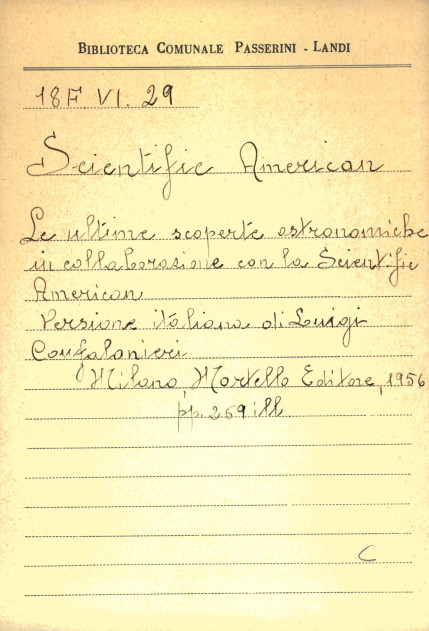 BIBLIOTECA COMUNALE PASSERINI - LANDI
18F. VI. 29
Scientific American
Le ultime scoperte astronomiche
in collaborazione con la Scientific
American
Versione italiana di Luigi
Confalonieri
Milano Martello Editore, 1956
pp. 269 ill
C